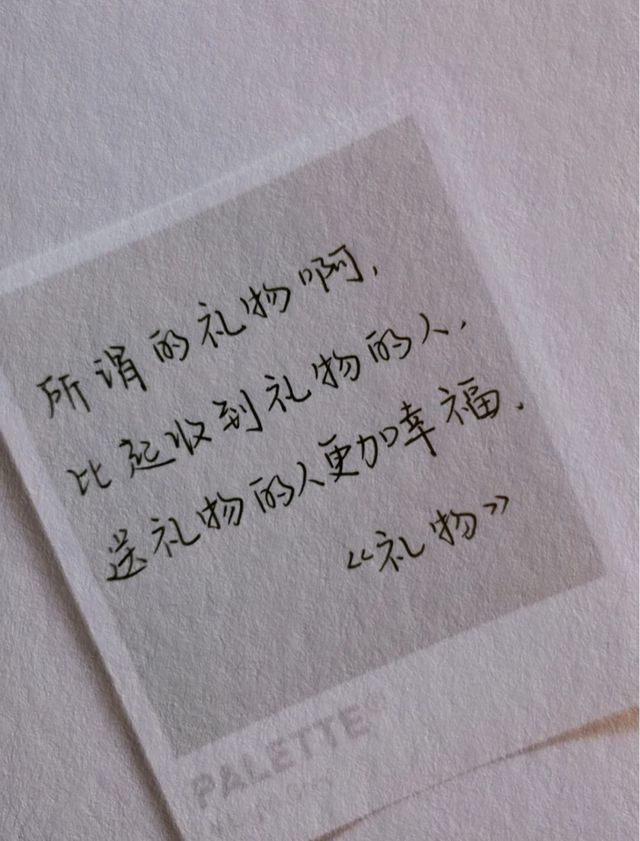 所谓的礼物啊,
比起收到礼物的人,
送礼物的人更加幸福.
《礼物》
PALETTE